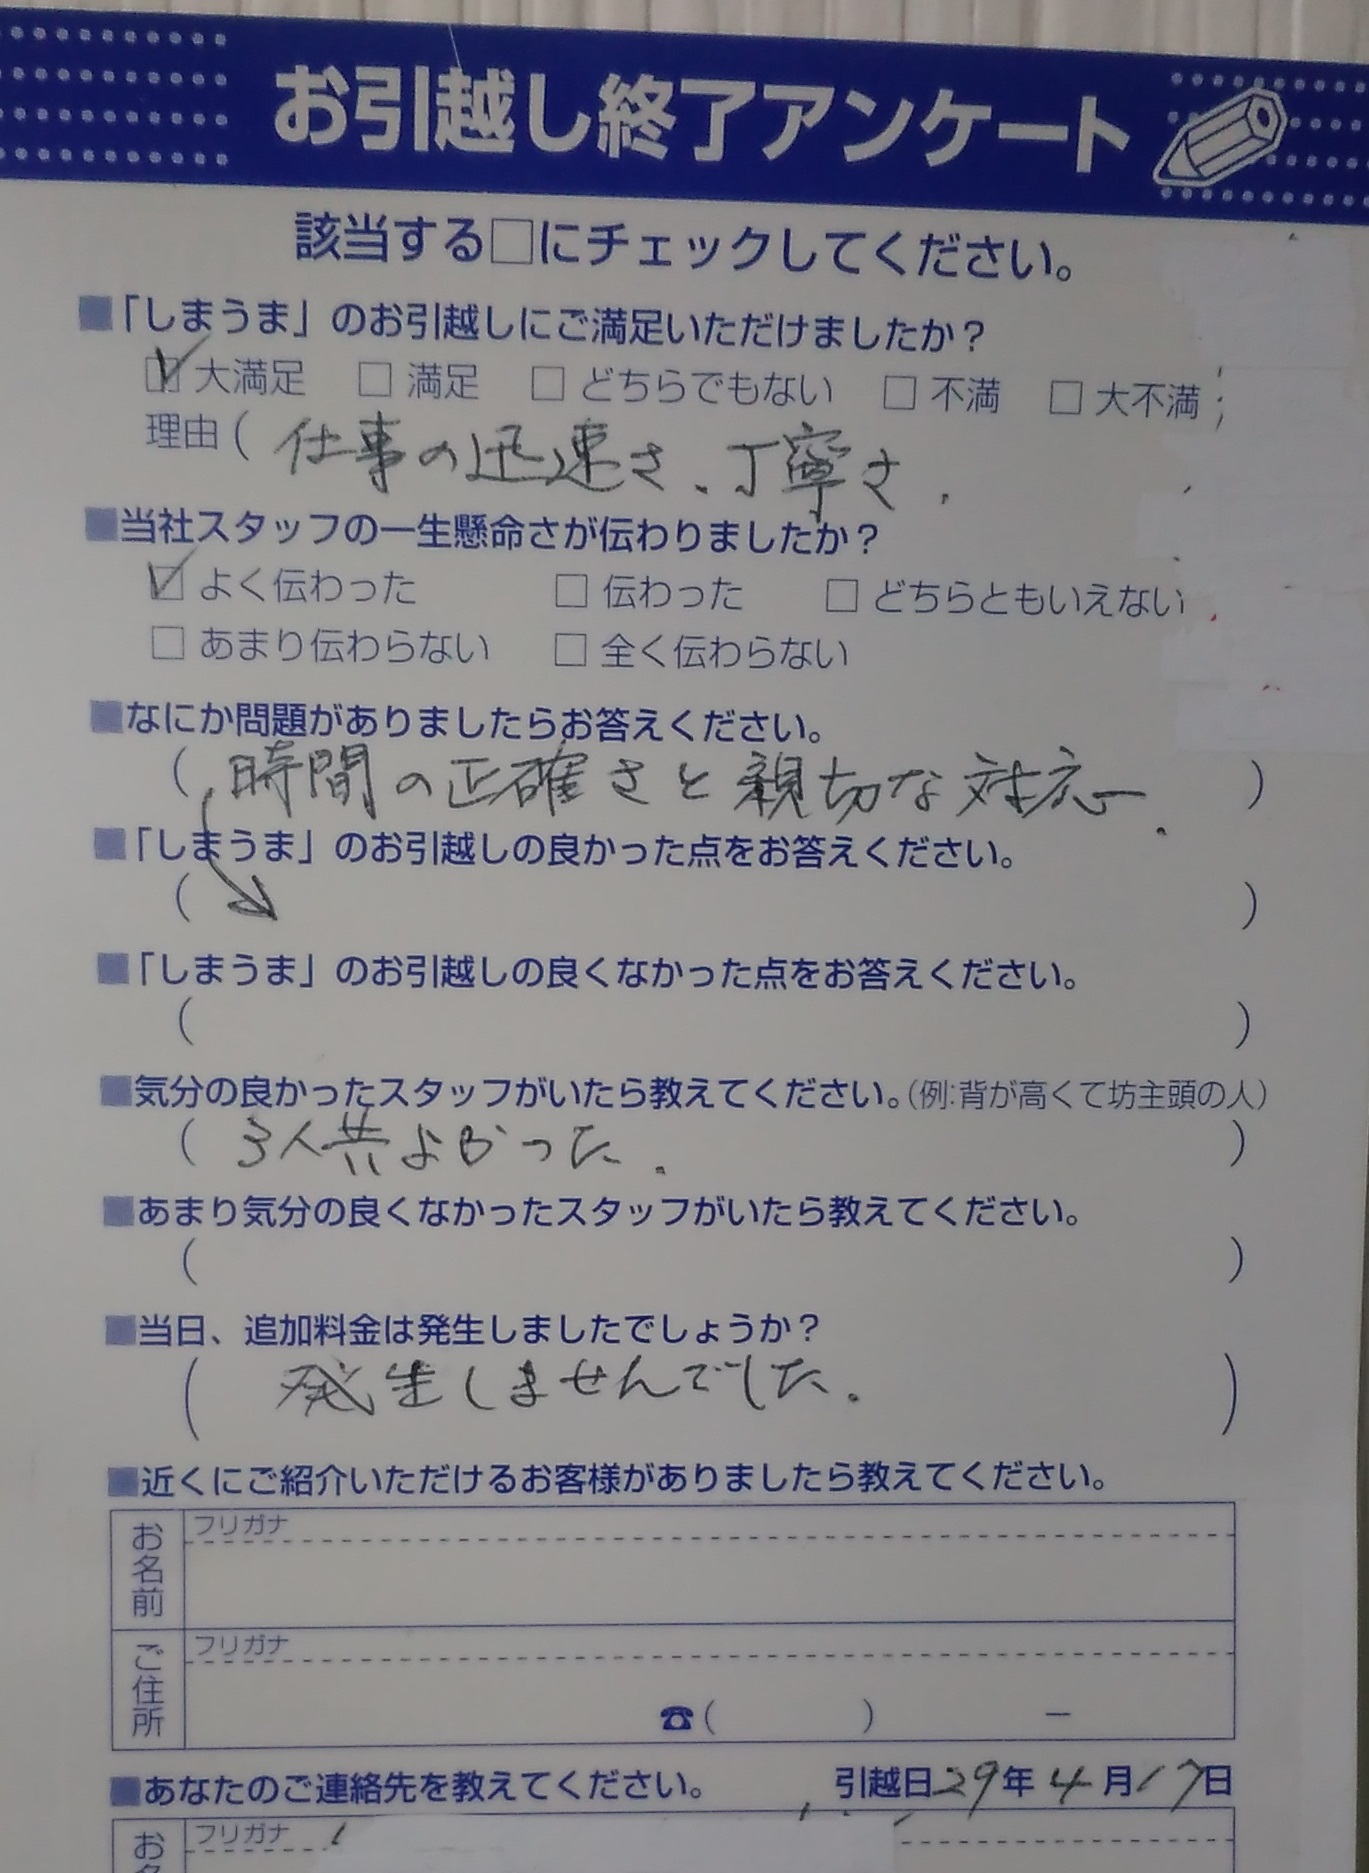 お引越し終了アンケート
該当する□にチェックしてください。
■「しまうま」のお引越しにご満足いただけましたか？
☑ 大満足 □ 満足 □ どちらでもない □ 不満 □ 大不満
理由( 仕事の迅速さ、丁寧さ.
■当社スタッフの一生懸命さが伝わりましたか？
☑ よく伝わった □ 伝わった □ どちらともいえない
□ あまり伝わらない □ 全く伝わらない
■なにか問題がありましたらお答えください。
( 時間の正確さと親切な対応. )
■「しまうま」のお引越しの良かった点をお答えください。
( )
■「しまうま」のお引越しの良くなかった点をお答えください。
( )
■気分の良かったスタッフがいたら教えてください。(例:背が高くて坊主頭の人)
( 3人共よかった. )
■あまり気分の良くなかったスタッフがいたら教えてください。
( )
■当日、追加料金は発生しましたでしょうか？
( 発生しませんでした. )
■近くにご紹介いただけるお客様がありましたら教えてください。
フリガナ
お名前
フリガナ
ご住所
☎( ) －
■あなたのご連絡先を教えてください。 引越日29年4月17日
フリガナ
お名